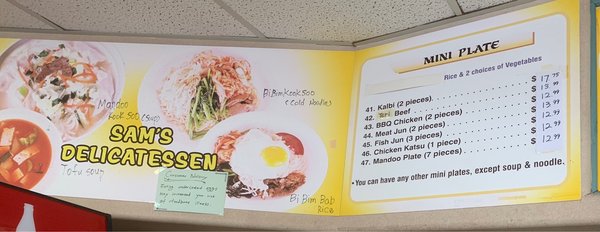 Mandoo
Kook soo (Soup)
BiBimKook soo
(Cold Noodles)
SAM'S
DELICATESSEN
Tofu soup
Consumer Advisory
Eating undercooked eggs
may increase your risk
of foodborne illness.
Bi Bim Bab
Rice
MINI PLATE
Rice & 2 choices of Vegetables
41. Kalbi (2 pieces) $ 17.95
42. Teri Beef $ 13.99
43. BBQ Chicken (2 pieces) $ 12.99
44. Meat Jun (2 pieces) $ 13.99
45. Fish Jun (3 pieces) $ 12.99
46. Chicken Katsu (1 piece) $ 12.99
47. Mandoo Plate (7 pieces) $ 12.99
•You can have any other mini plates, except soup & noodle.